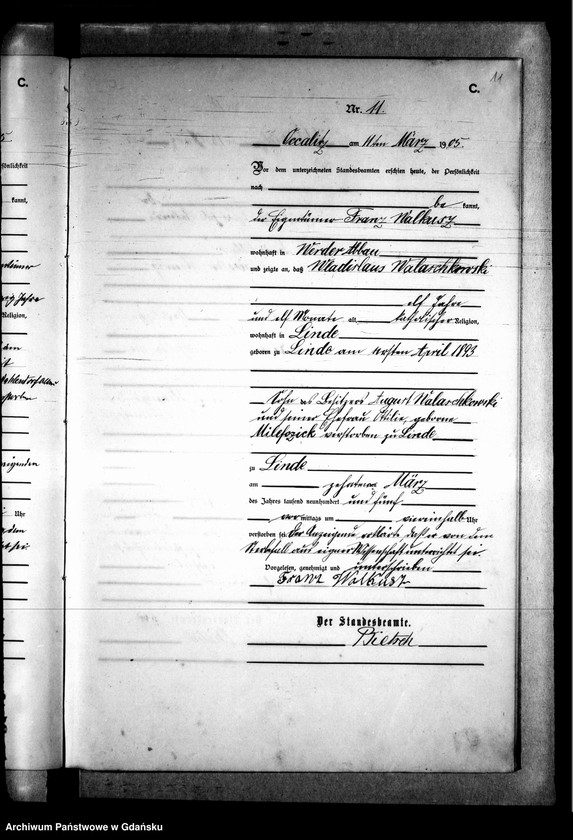 C.
11
C.
Nr. 11.
am 11ten März 1905.
Vor dem unterzeichneten Standesbeamten erschien heute, der Persönlichkeit
nach
be kannt,
der Eigentümer Franz Walkusz
wohnhaft in Werder Abbau
und zeigte an, daß Wladislaus Walaschkowski
elf Jahre
und elf Monate alt, katholischer Religion,
wohnhaft in Linde
geboren zu Linde am ersten April 1893
Sohn des Besitzers August Walaschkowski
und seiner Ehefrau Ottilie, geborene
verstorben zu Linde
zu Linde
am zehnten März
des Jahres tausend neunhundert und fünf
vor mittags um viereinhalb Uhr
verstorben sei. Der Anzeigende erklärte, daß er von dem
Sterbefall aus eigner Wissenschaft unterrichtet sei.
Vorgelesen, genehmigt und unterschrieben
Franz Walkusz
Der Standesbeamte.
Archiwum Państwowe w Gdańsku